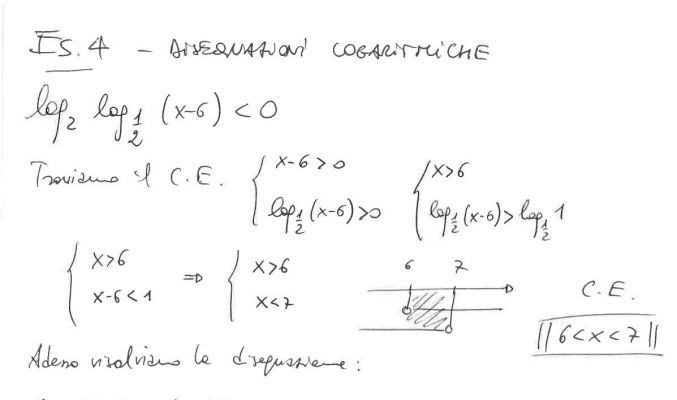 ES. 4 - DISEQUAZIONI LOGARITMICHE
log₂ log_{1/2} (x-6) < 0
Troviamo il C.E. { x-6>0 ; log_{1/2}(x-6)>0 { x>6 ; log_{1/2}(x-6) > log_{1/2} 1
{ x>6 ; x-6<1 ⇒ { x>6 ; x<7 6 7 C.E. || 6<x<7 ||
Adesso risolviamo la disequazione: